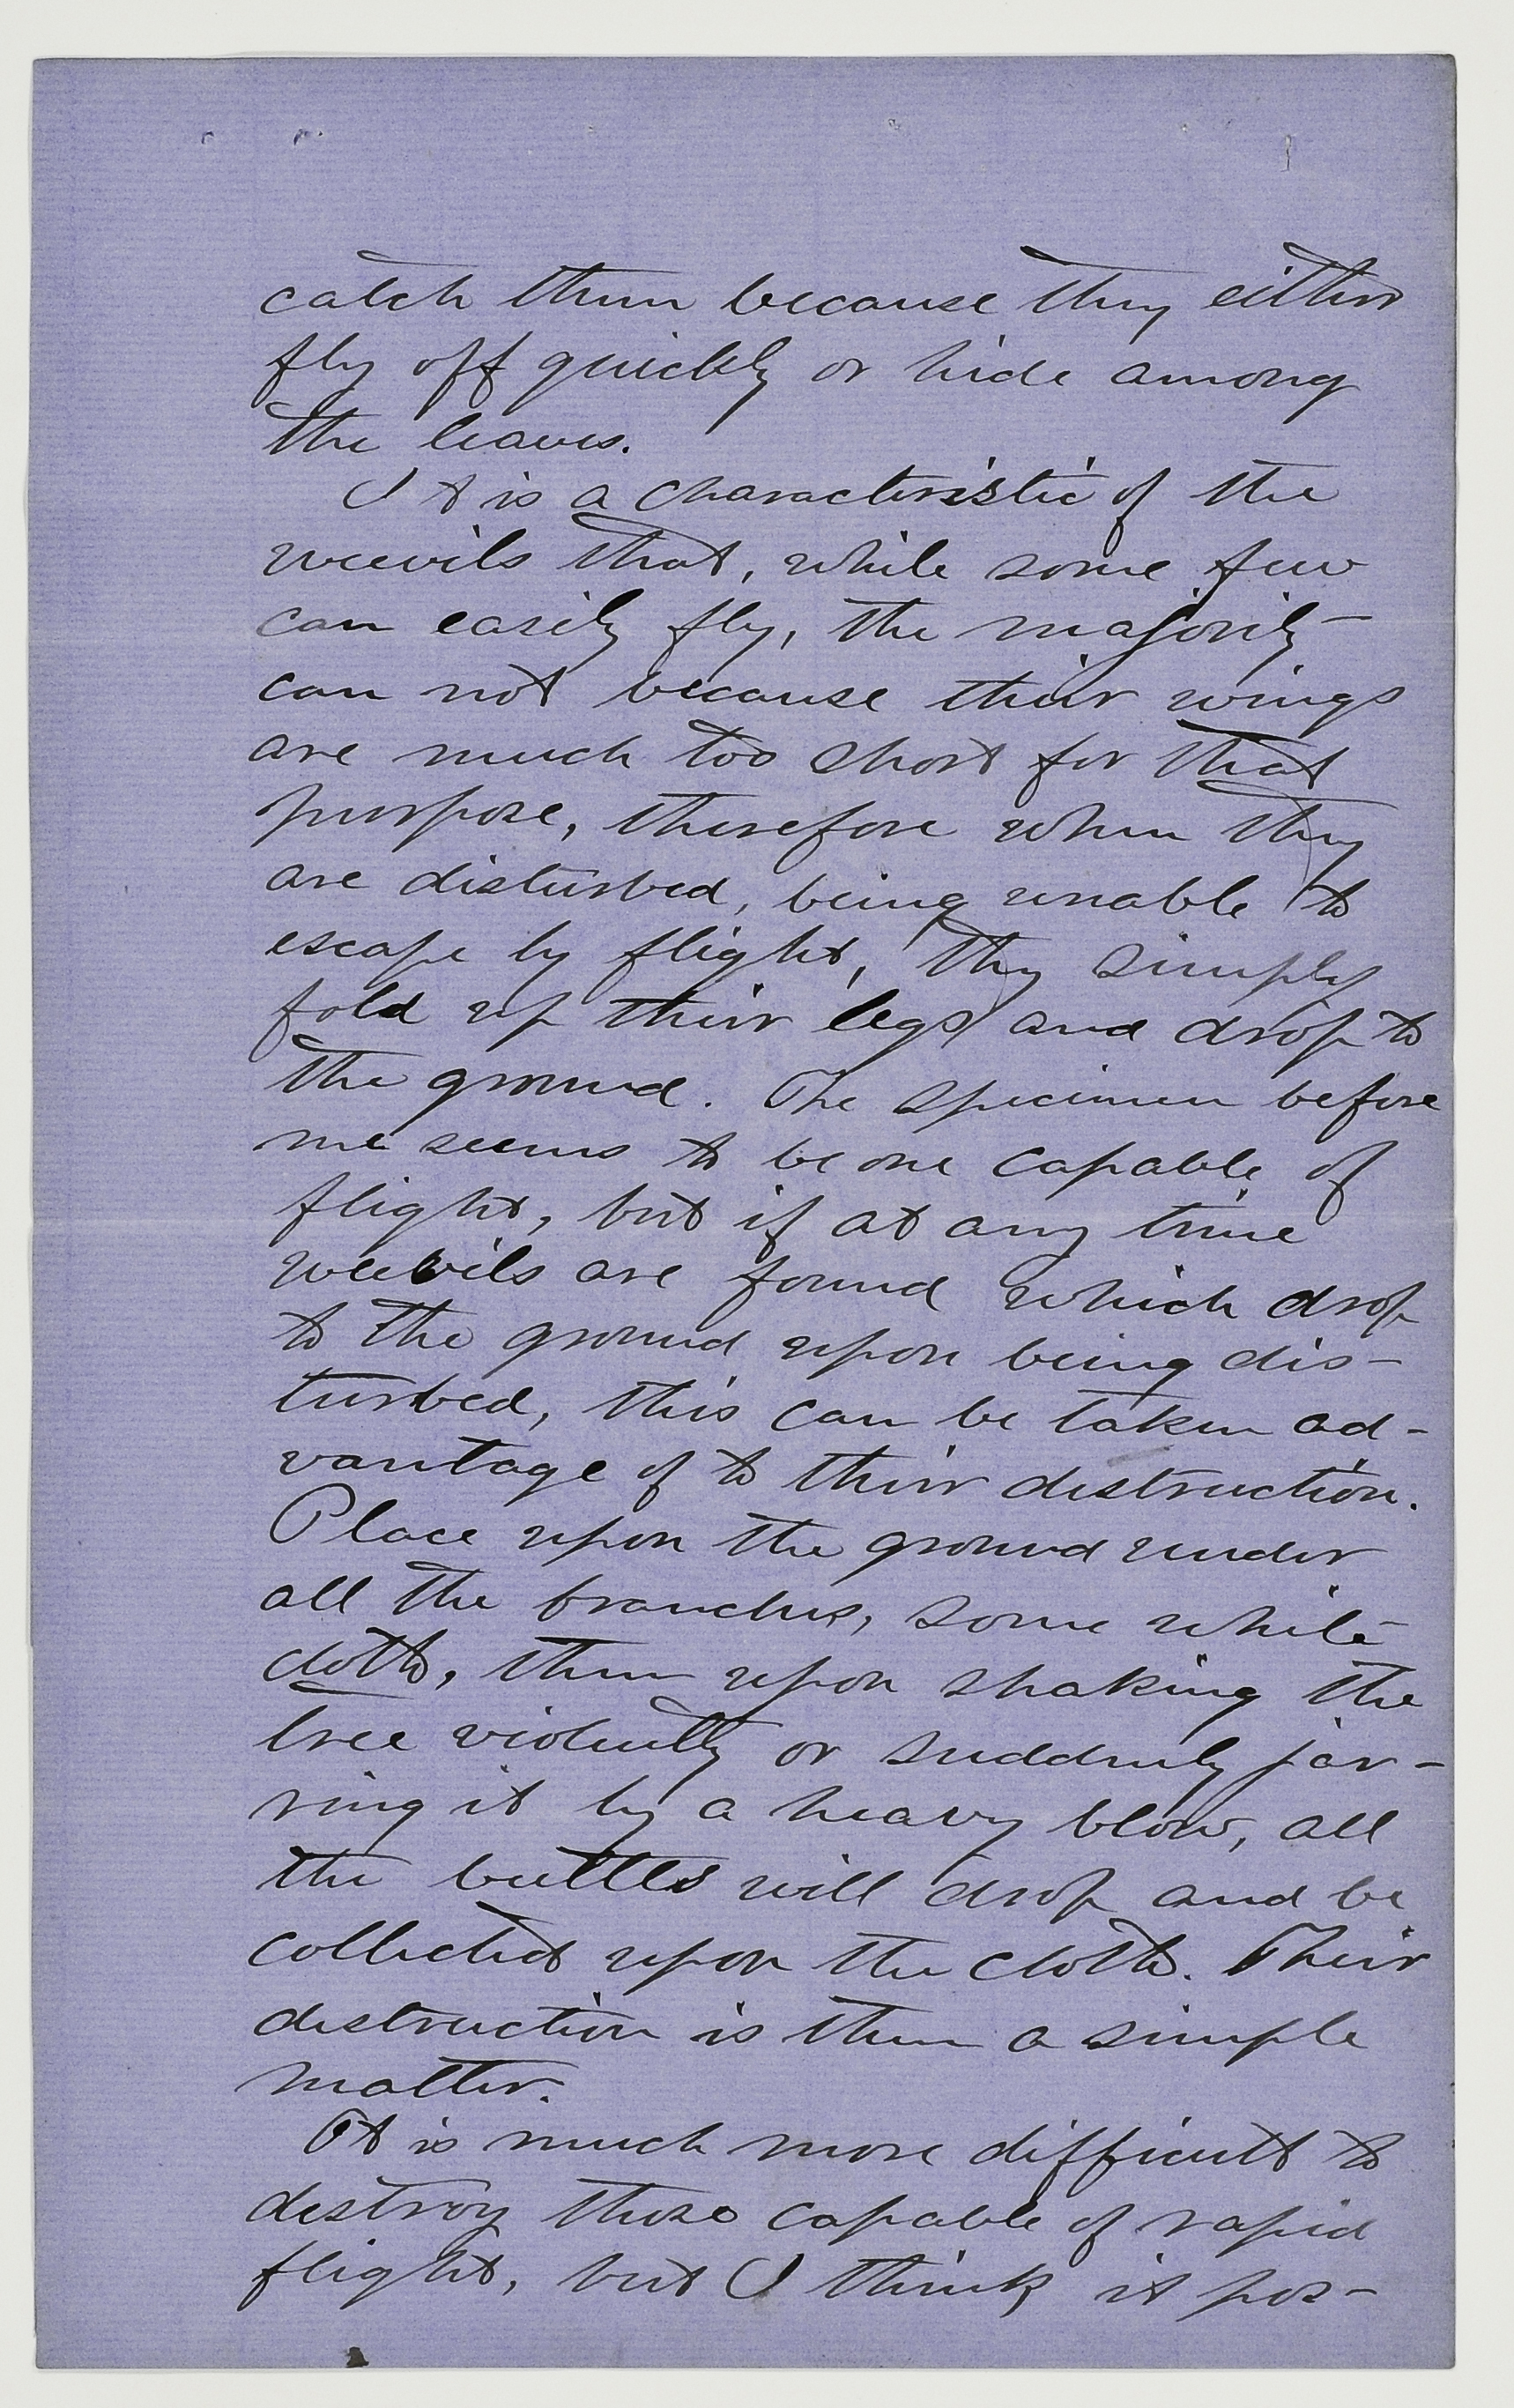 catch them because they either
fly off quickly or hide among
the leaves.
It is a characteristic of the
weevils that, while some few
can easily fly, the majority
can not because their wings
are much too short for that
purpose, therefore when they
are disturbed, being unable to
escape by flight, they simply
fold up their legs and drop to
the ground. The specimen before
me seems to be one capable of
flight, but if at any time
weevils are found which drop
to the ground upon being dis-
turbed, this can be taken ad-
vantage of to their destruction.
Place upon the ground under
all the branches, some white
cloth, then upon shaking the
tree violently or suddenly jar-
ring it by a heavy blow, all
the beetles will drop and be
collected upon the cloth. Their
destruction is then a simple
matter.
It is much more difficult to
destroy those capable of rapid
flight, but I think it pos-